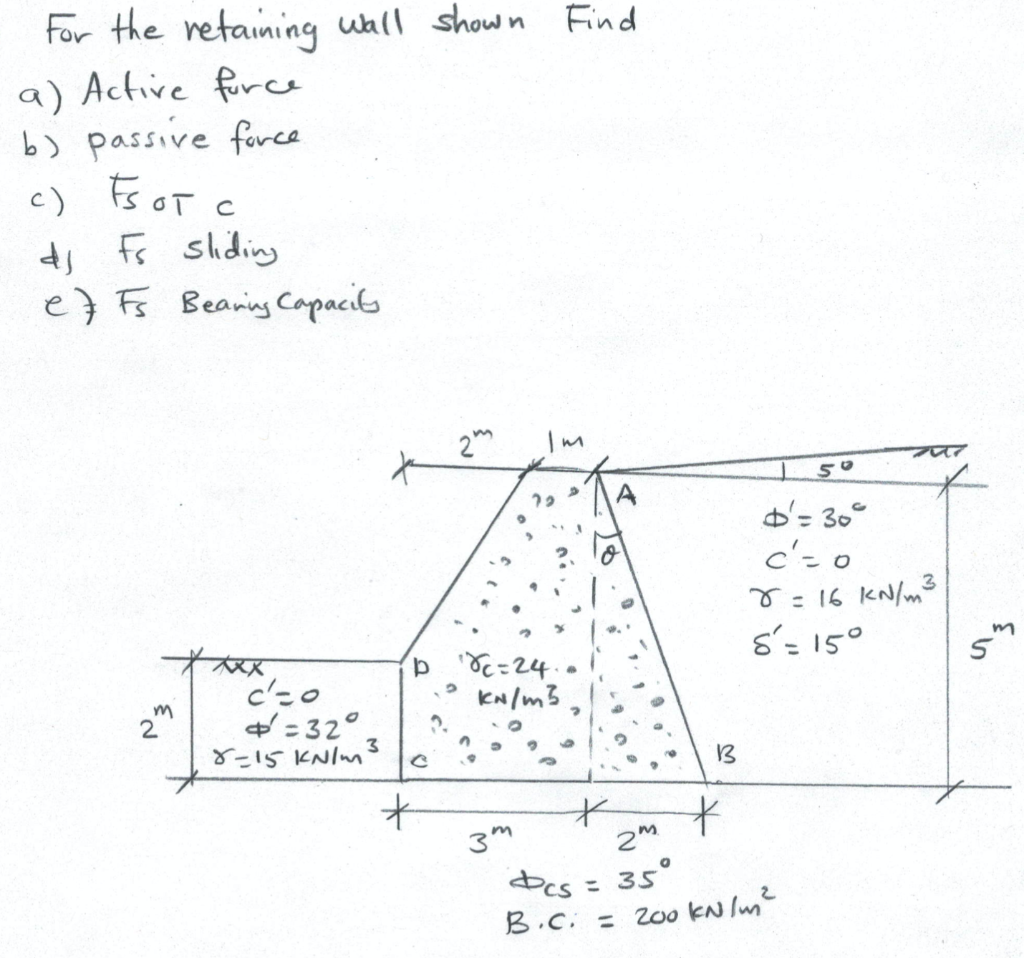 For the retaining wall shown Find
a) Active force
b) passive force
c) Fs OT C
d) Fs Sliding
e) Fs Bearing Capacity
2m 1m
5°
A
θ
ϕ'= 30°
c'= 0
γ = 16 KN/m³
δ'= 15°
5m
D
γc=24
KN/m3
2m
c'=0
ϕ'=32°
γ=15 KN/m3
C
B
3m
2m
ϕcs = 35°
B.C. = 200 KN/m²